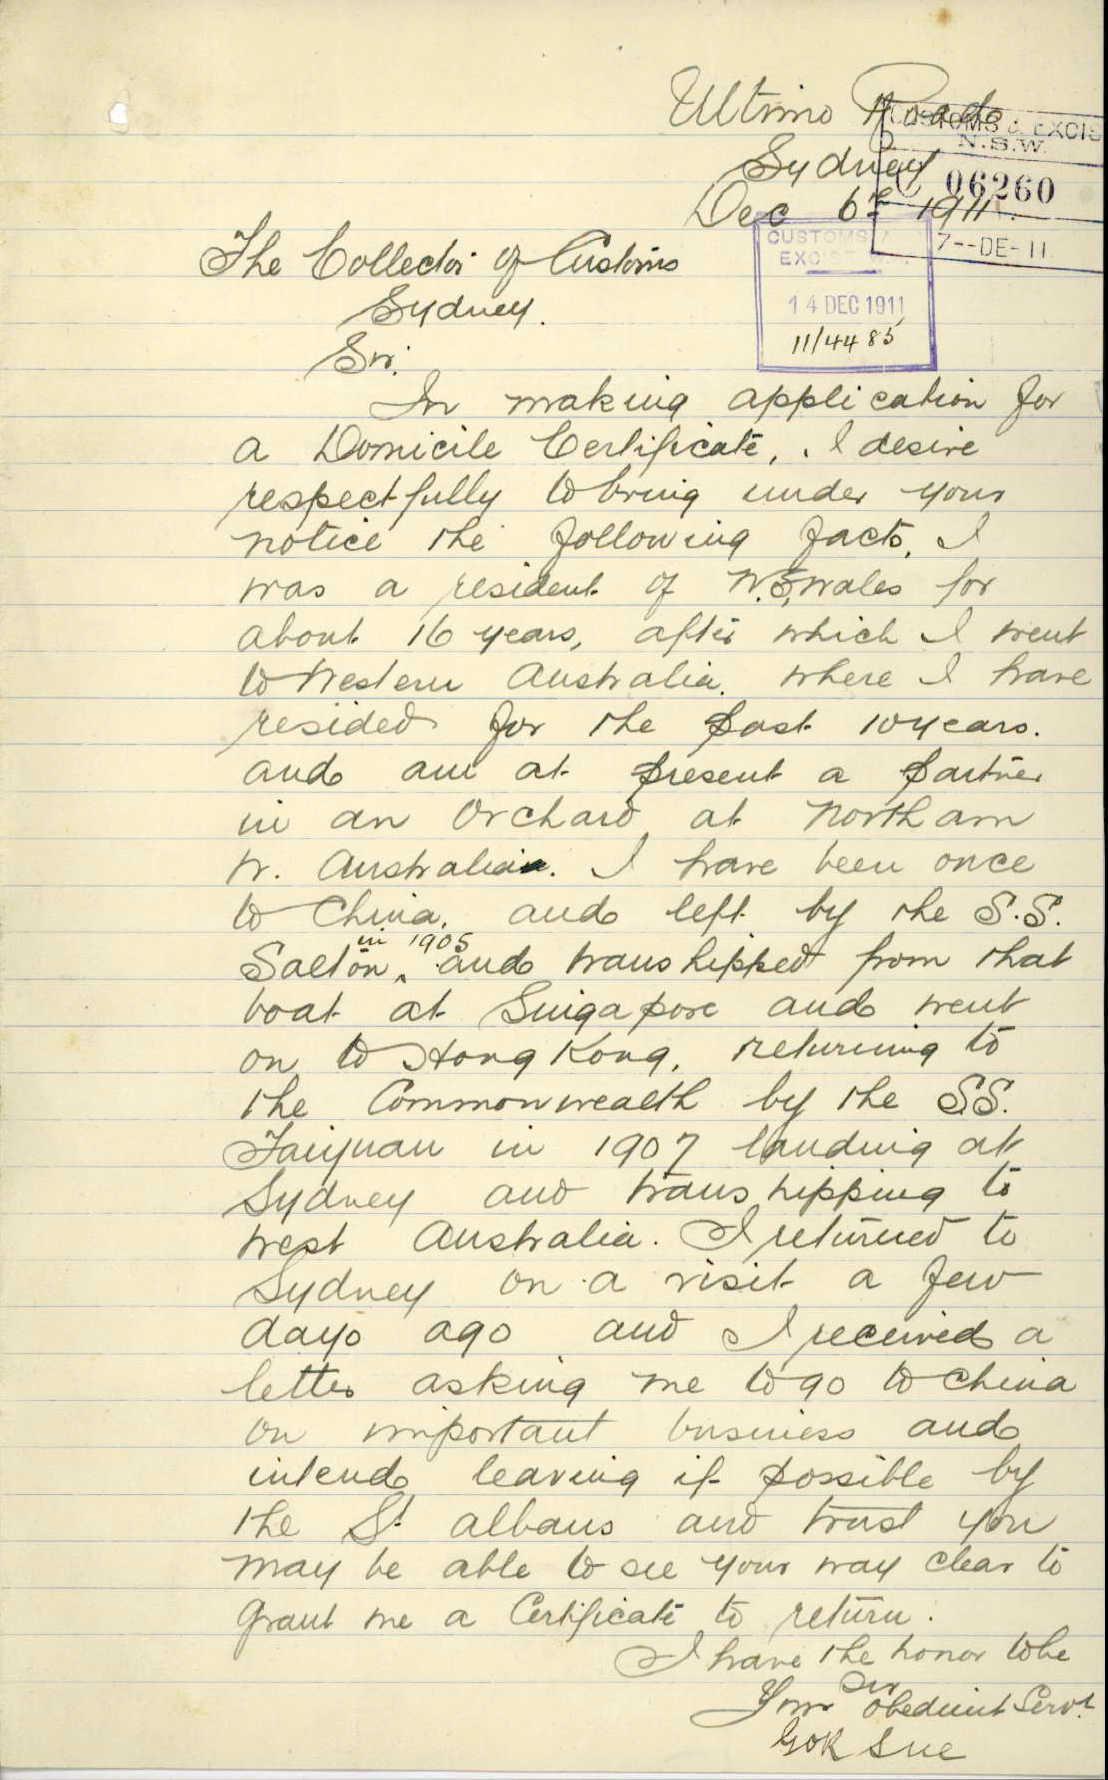 Ultimo Road
Sydney
Dec 6th 1911.
CUSTOMS & EXCIS
N.S.W.
C 06260
7--DE-11
CUSTOMS
EXCISE
14 DEC 1911
11/4485
The Collector of Customs
Sydney.
Sir.
In making application for
a Domicile Certificate, I desire
respectfully to bring under your
notice the following facts, I
was a resident of N.S.Wales for
about 16 years, after which I went
to Western Australia. where I have
resided for the past 10 years.
and am at present a partner
in an Orchard at Northam
W. Australia. I have been once
to China, and left by the S.S.
in 1905
Salton, and transhipped from that
boat at Singapore and went
on to Hong Kong, returning to
the Commonwealth by the S.S.
Taiyuan in 1907 landing at
Sydney and transhipping to
West Australia. I returned to
Sydney on a visit a few
days ago and I received a
letter asking me to go to China
on important business and
intend leaving if possible by
the St Albans and trust you
may be able to see your way clear to
grant me a Certificate to return.
I have the honor to be
Sir
Your Obedient Servt.
Gok Sue